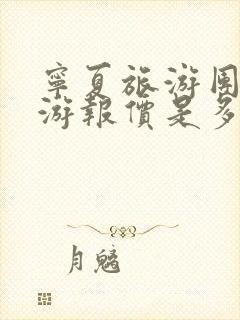 寧夏旅游團
游報價是多
月魑